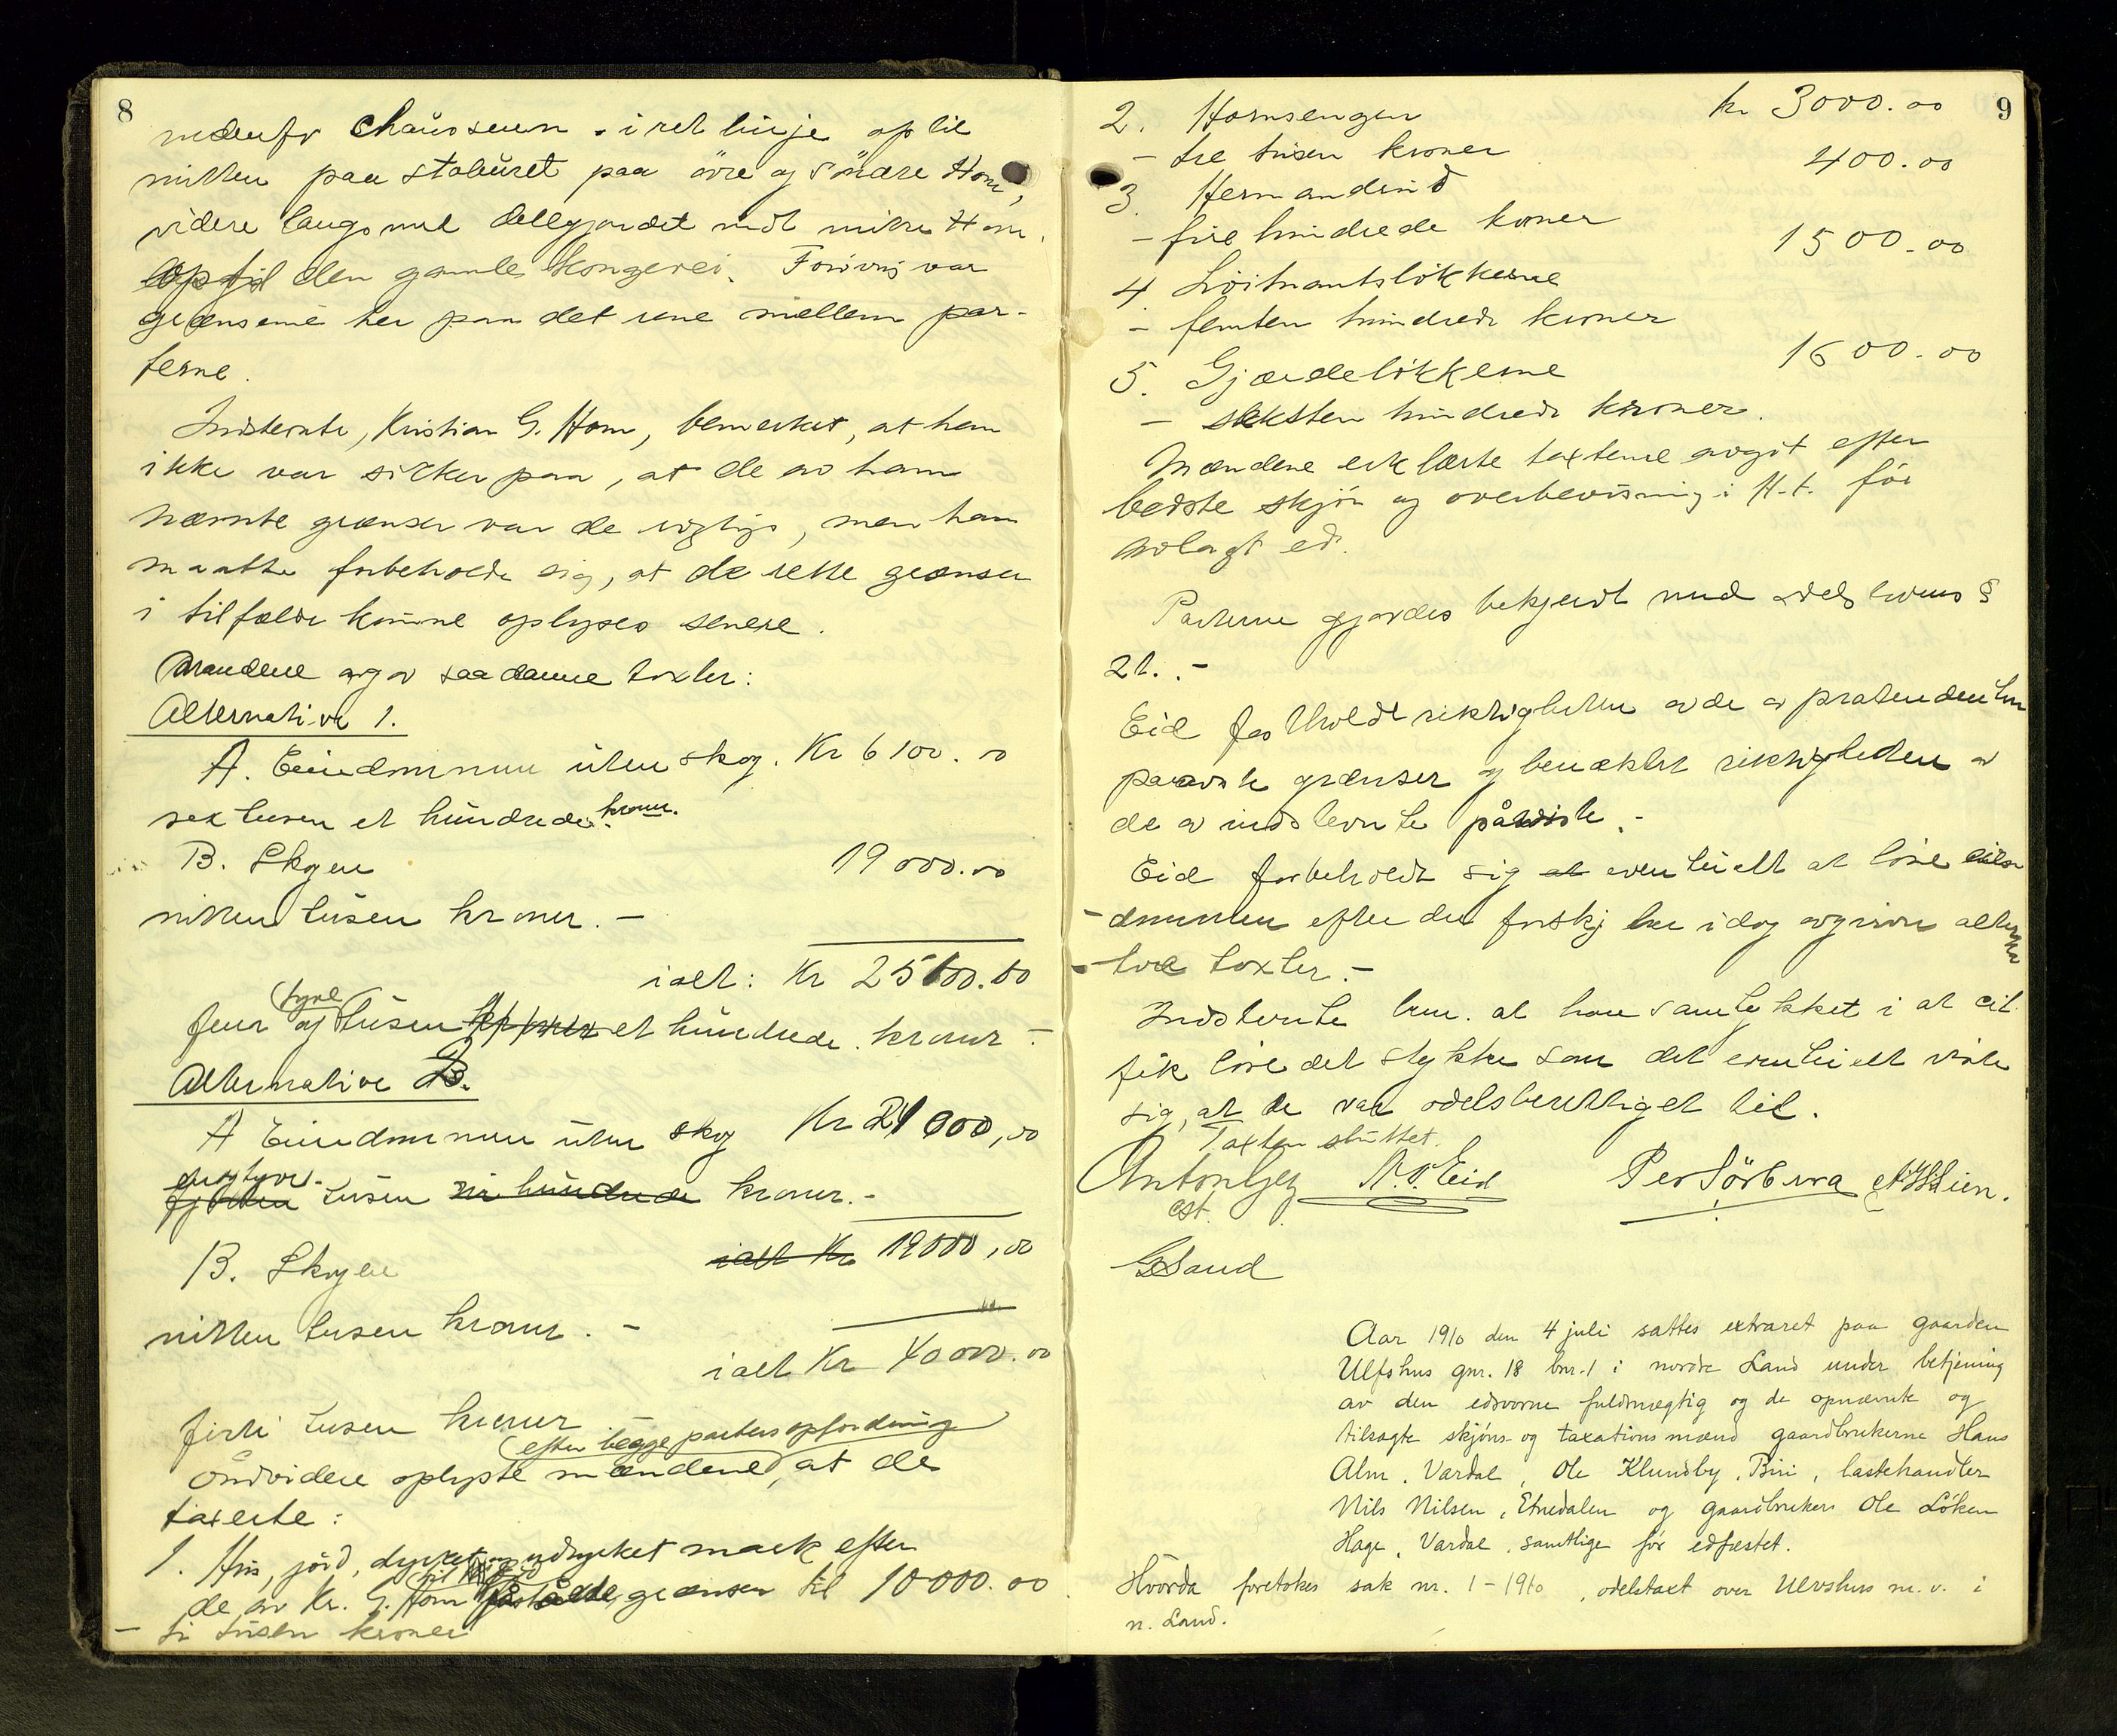 8
nedenfor Chausseen . i ret linje op til
mitten paa staburet paa övre og Söndre Hom,
videre langs med delegjærdet mot mitre Hom.
op til den gamle Kongevei. Forövrig var
grænserne her paa det rene mellem par-
terne.
Indstevnte, Kristian G. Hom, bemerket, at han
ikke var sikker paa, at de av ham
nævnte grænser var de rigtige, men han
maatte forbeholde sig, at de rette grænser
i tilfælde kunne oplyses senere.
Mændene avgav saadanne taxter:
Alternative 1.
A. Eiendommen uten skog. Kr 6100.00
sex tusen et hundrede kroner.
B. Skogen 19000.00
nitten tusen kroner. -
ialt: Kr 25100.00
fem og tyve tusen et hundrede kroner -
Alternative B.
A Eiendommen uten skog Kr 21000,00
enogtyve
fjorten tusen ni hundrede kroner. -
B. Skogen ialt Kr 19000,00
nitten tusen kroner. -
ialt Kr 40000.00
firti tusen kroner
(efter begge parters opfordring)
Endvidere oplyste mændene, at de
taxerte:
1. Hus, jord, dyrket og udyrket mark efter
de av Kr. G. Hom paastaaede grænser til 10000.00
- ti tusen kroner
9
2. Homsengen kr 3000.00
- tre tusen kroner
3. Hermandsrud 400.00
- fire hundrede kroner
4 Löitnantslökkerne 1500.00
- femten hundrede kroner
5. Gjærdelökkerne 1600.00
- seksten hundrede kroner.
Mændene erklærte taxterne avgit efter
bedste skjön og overbevisning i H.t. för
avlagt ed.
Parterne gjordes bekjendt med odelslovens §
21. -
Eid fastholdt riktigheten av de av prætendenten
paaviste grænser og benæktet riktigheten av
de av indstevnte påviste. -
Eid forbeholdt sig at eventuelt at löse eien
-dommen efter de forskj her idag avgivne alterna
-tive taxter. -
Indstevnte bem. at han samtykket i at cit.
fik löse det stykke som det eventuelt viste
sig, at de var odelsberettiget til.
Taxten sluttet.
Anton Gey N. P. Eid Per Sörbera A H Lien.
cst.
G Sand
Aar 1910 den 4 juli sattes extraret paa gaarden
Ulfshus gnr. 18 bnr. 1 i nordre Land under betjening
av den edsvorne fuldmægtig og de opnævnte og
tilsagte skjöns- og taxationsmænd gaardbrukerne Hans
Alm, Vardal, Ole Klundby, Biri, lastehandler
Nils Nilsen, Etnedalen og gaardbruker Ole Löken
Hage, Vardal, samtlige för edfæstet.
Hvorda foretokes sak nr. 1-1910, odelstaxt over Ulvshus m. v. i
n. Land.